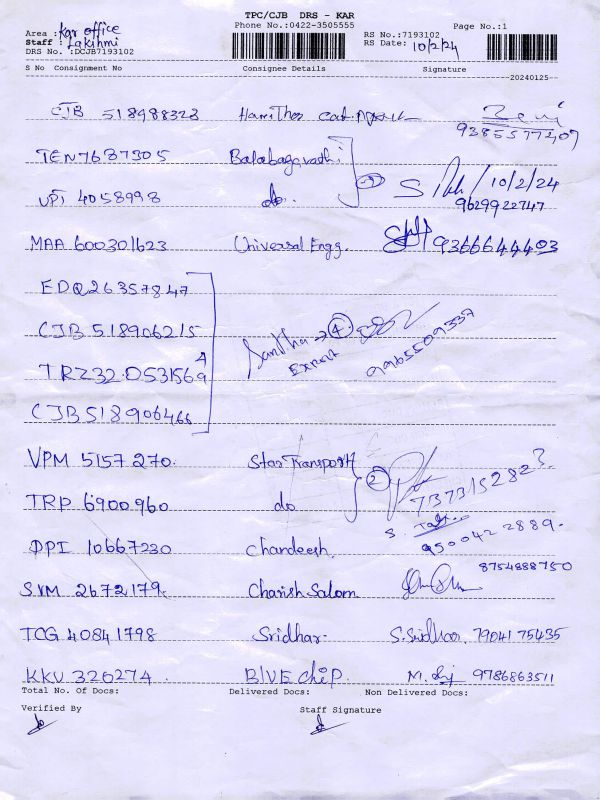 TPC/CJB DRS - KAR
Phone No.:0422-3505555
Page No.:1
Area : Kar office
Staff : Lakshmi
DRS No. :DCJB7193102
RS No.:7193102
RS Date: 10/2/24
S No Consignment No Consignee Details Signature
20240125
CJB 518988323
9385577407
TEN 7687305
UPI 4058998 do. S 10/2/24
9629922747
MAA 600301623 Universal Engg. 9366644403
EDQ26357847
CJB 518906215
TRZ320531569 Santha → 4
Export 9965509337
CJB518906466
VPM 5157270. Star Transport 2
TRP 6900960 do
DPI 10667230 Chandeesh. 9500422889.
8754888750
SVM 2672179. Charish Salom
TCG 40841798 Sridhar. S. Sridhar. 7904175435
KKV 320274 BlUE chip. 9786863511
Total No. Of Docs: Delivered Docs: Non Delivered Docs:
Verified By Staff Signature